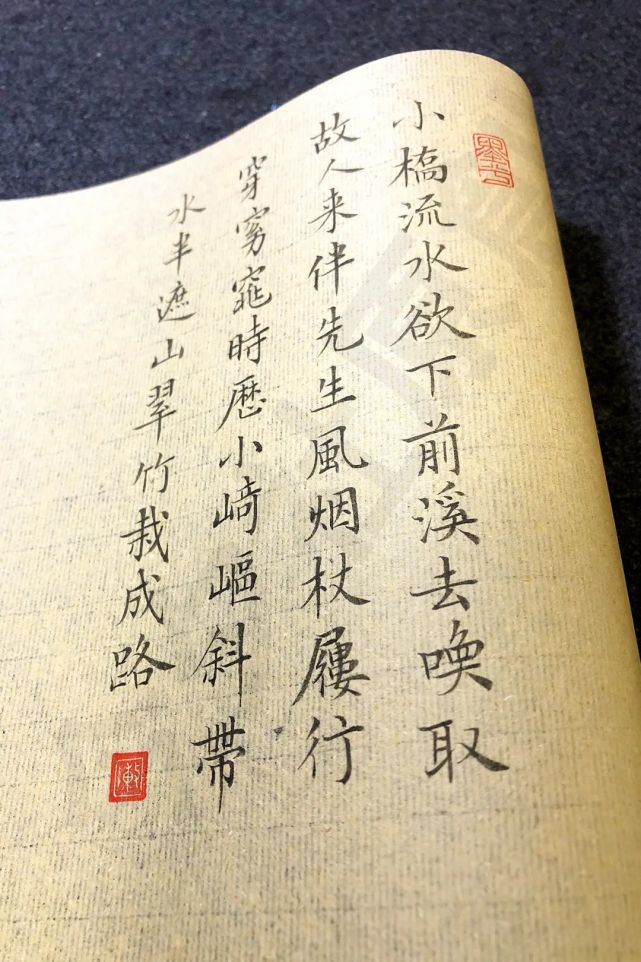 小橋流水欲下前溪去喚取
故人来伴先生風烟杖屨行
穿窈窕時歷小﨑嶇斜帶
水半遮山翠竹栽成路